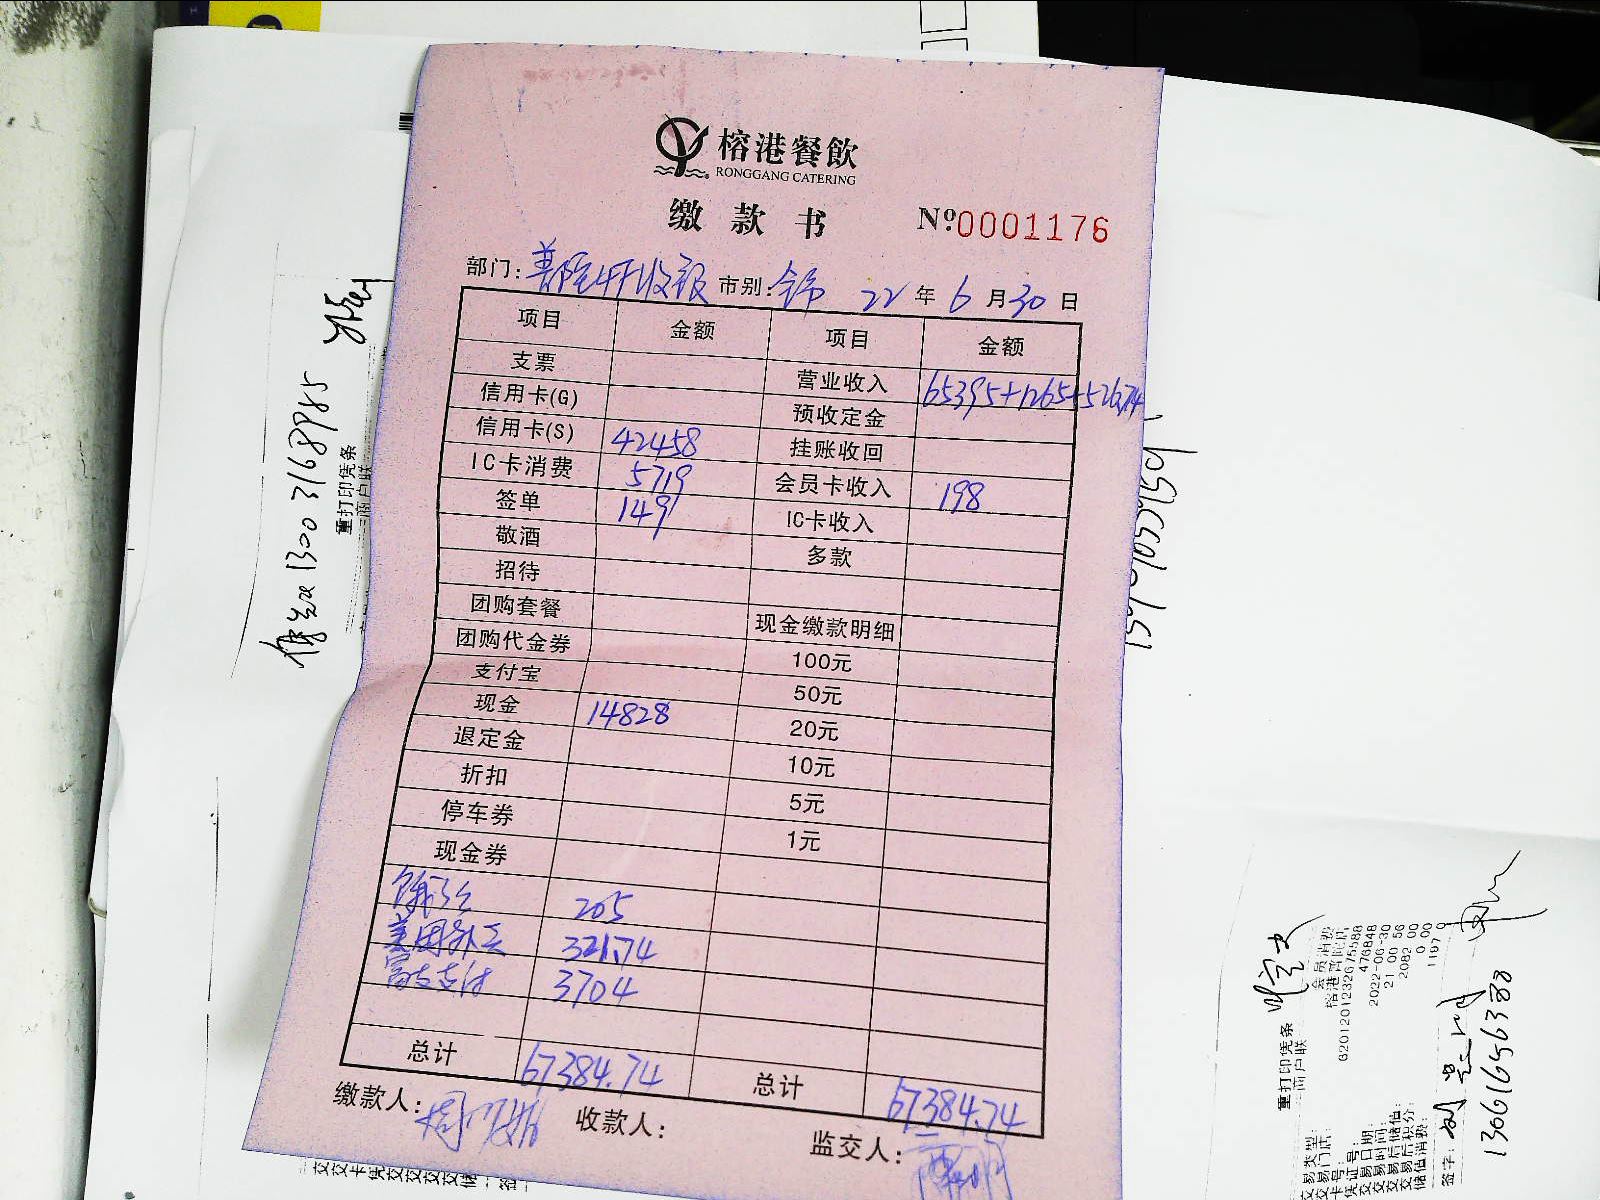 榕港餐飲
RONGGANG CATERING
缴款书 Nº0001176
部门: 市别: 22年6月30日
项目 金额 项目 金额
支票 营业收入 65395+1265+526.74
信用卡(G) 预收定金
信用卡(S) 42458 挂账收回
IC卡消费 5719 会员卡收入 198
签单 149 IC卡收入
敬酒 多款
招待
团购套餐 现金缴款明细
团购代金券 100元
支付宝 50元
现金 14828 20元
退定金 10元
折扣 5元
停车券 1元
现金券
205
美团外卖 321.74
3704
总计 67384.74 总计 67384.74
缴款人: 收款人: 监交人:
1300 3168985
重打印凭条
商户联
重打印凭条
商户联
会员消费
榕港普陀店
6201201232675588
476848
2022-06-30
21 00 56
2082 00
0 00
1197 0
交易类型:
交易门店:
卡号:
凭证号:
交易日期:
交易时间:
交易后储值:
交易后积分:
储值消费:
签字:
13661656388